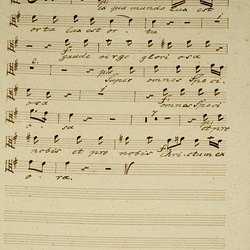 ta qua mundo Lux est
orta Lux est or ta
Gaude virgo glori osa
Super omnes Speci
osa omnes Speci
o sa et pro
nobis et pro nobis Christum ex
o ra,